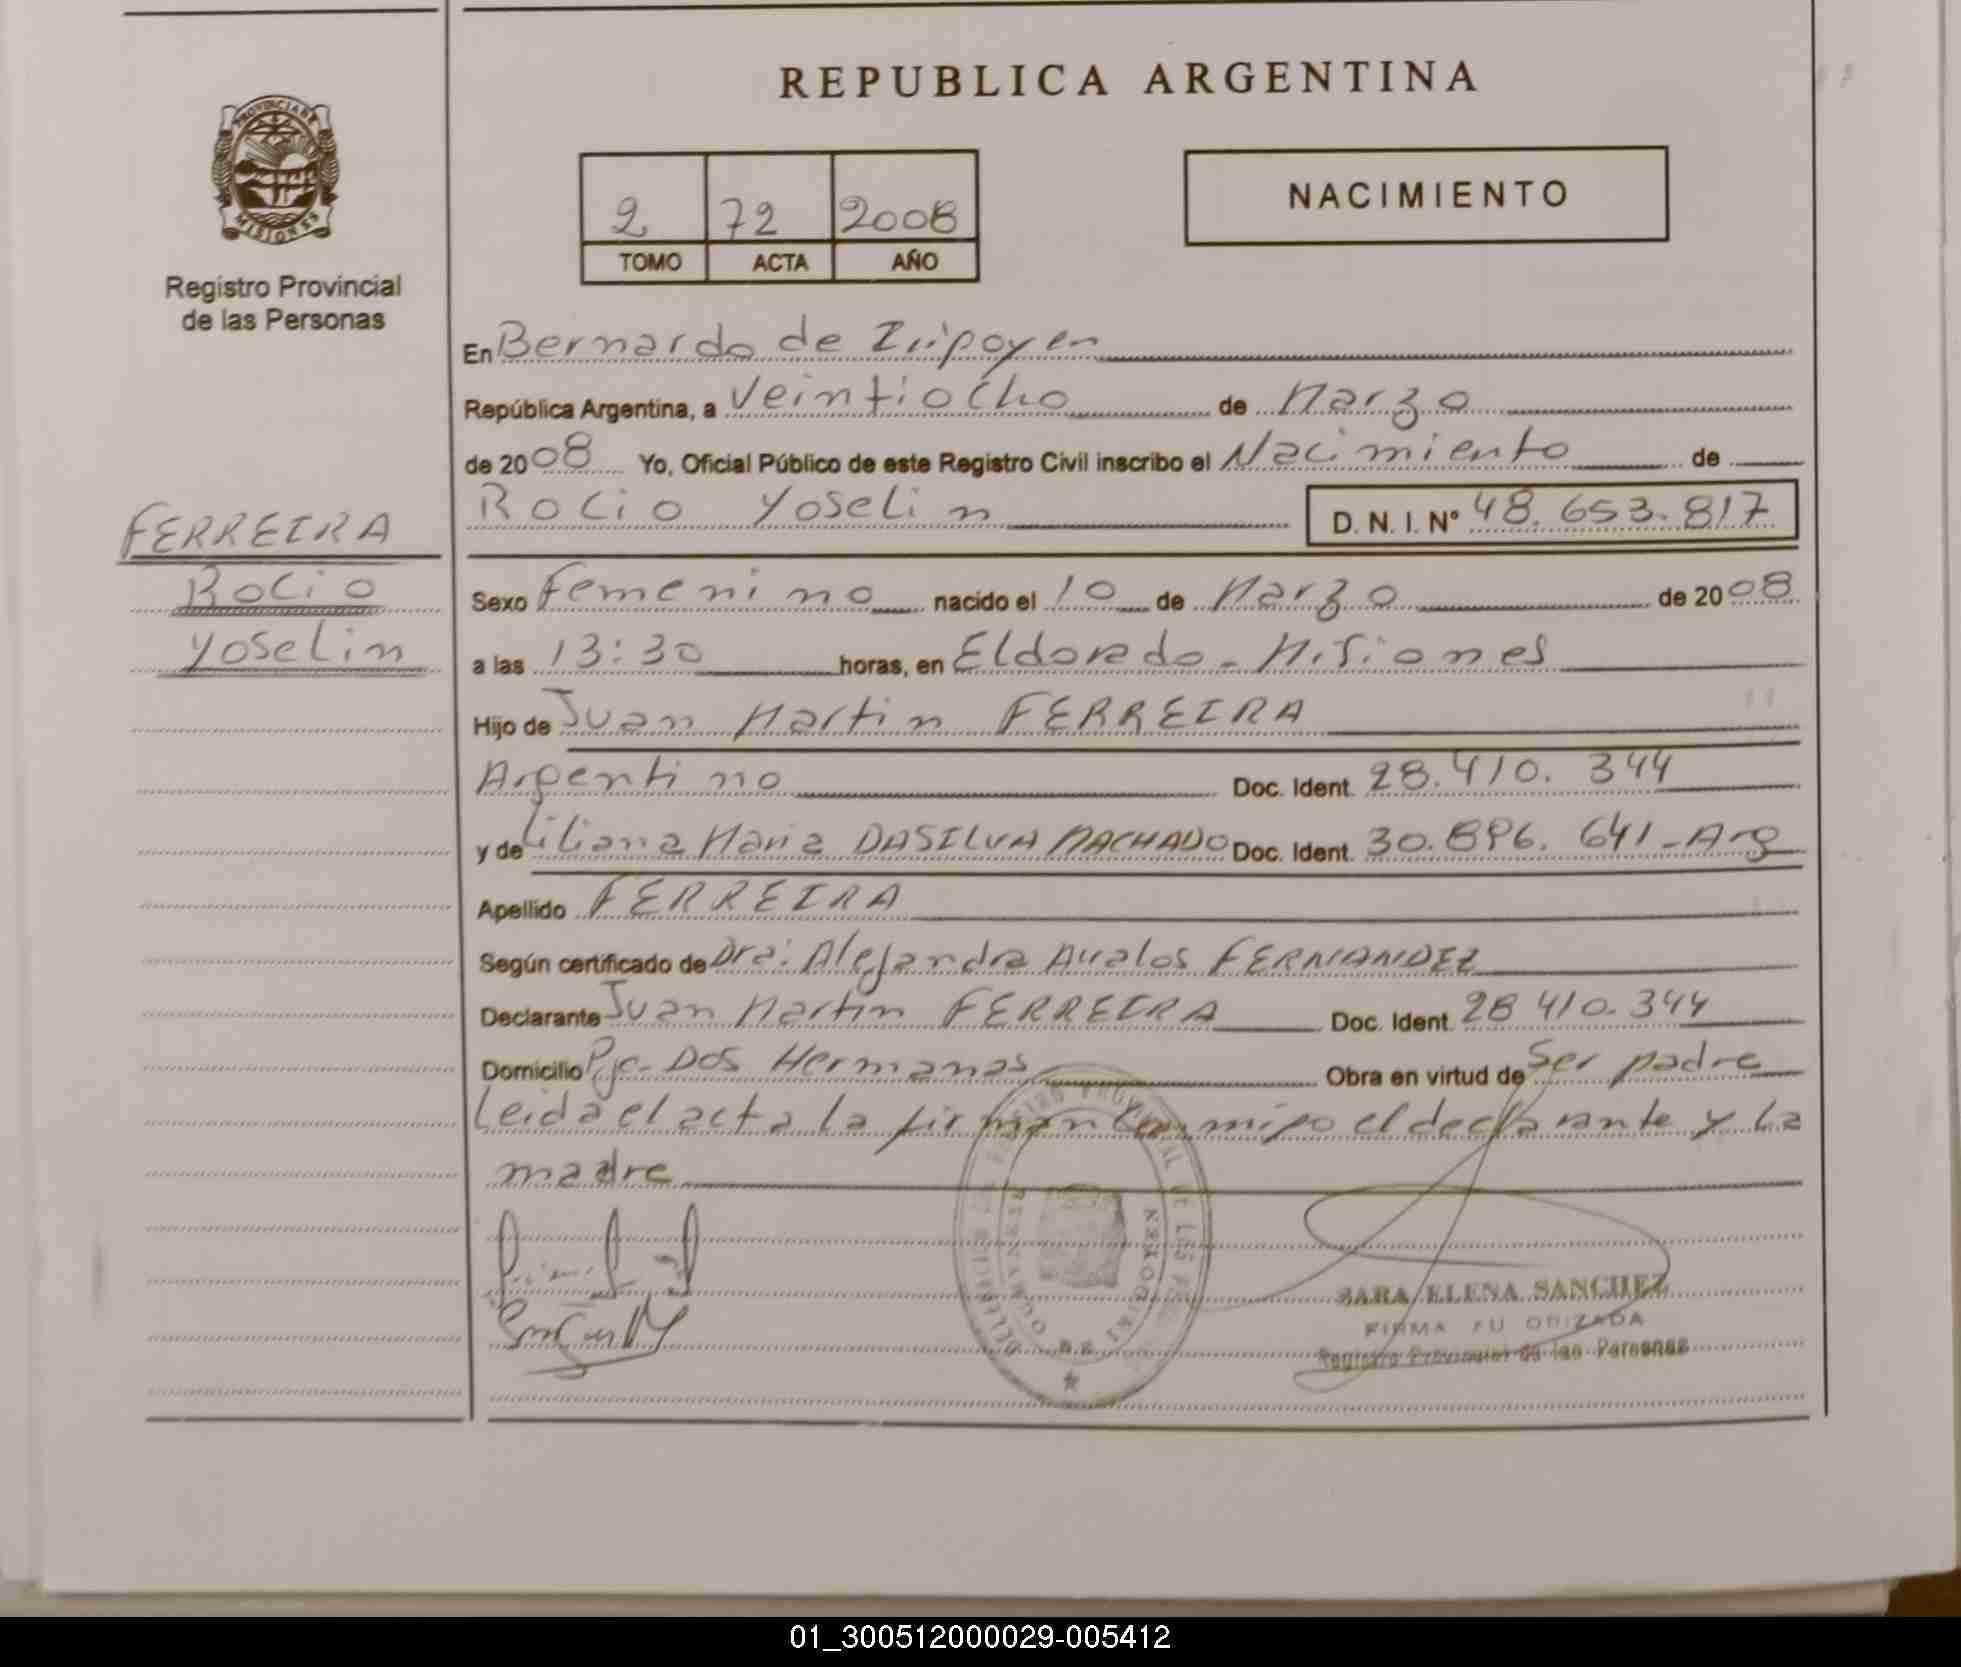 REPUBLICA ARGENTINA
PROVINCIA DE
MISIONES
Registro Provincial
de las Personas
2 72 2008
TOMO ACTA AÑO
NACIMIENTO
En Bernardo de Irigoyen
República Argentina, a Veintiocho de Marzo
de 2008 Yo, Oficial Público de este Registro Civil inscribo el Nacimiento de
Rocio Yoselin D. N. I. Nº 48.653.817
FERREIRA
Rocio
Yoselin
Sexo Femenino nacido el 10 de Marzo de 2008
a las 13:30 horas, en Eldorado - Misiones
Hijo de Juan Martin FERREIRA
Argentino Doc. Ident. 28.410.344
y de Liliana Maria DASILVA MACHADO Doc. Ident. 30.896.641-Arg
Apellido FERREIRA
Según certificado de Dra: Alejandra Avalos FERNANDEZ
Declarante Juan Martin FERREIRA Doc. Ident. 28 410.344
Domicilio Pje- Dos Hermanas Obra en virtud de Ser padre
Leida el acta la firman conmigo el declarante y la
madre
SARA ELENA SANCHEZ
FIRMA AUTORIZADA
Registro Provincial de las Personas
01_300512000029-005412